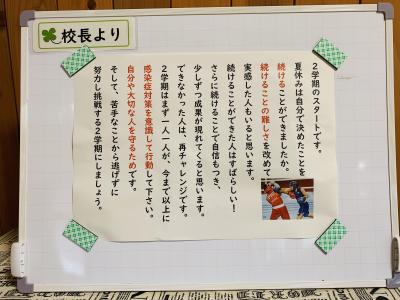 校長より
２学期のスタートです。
夏休みは自分で決めたことを
続けることができましたか。
続けることの難しさを改めて
実感した人もいると思います。
続けることができた人はすばらしい！
さらに続けることで自信もつき、
少しずつ成果が現れてくると思います。
できなかった人は、再チャレンジです。
２学期はまず一人一人が、今まで以上に
感染症対策を意識して行動して下さい。
自分や大切な人を守るためです。
そして、苦手なことから逃げずに
努力し挑戦する２学期にしましょう。